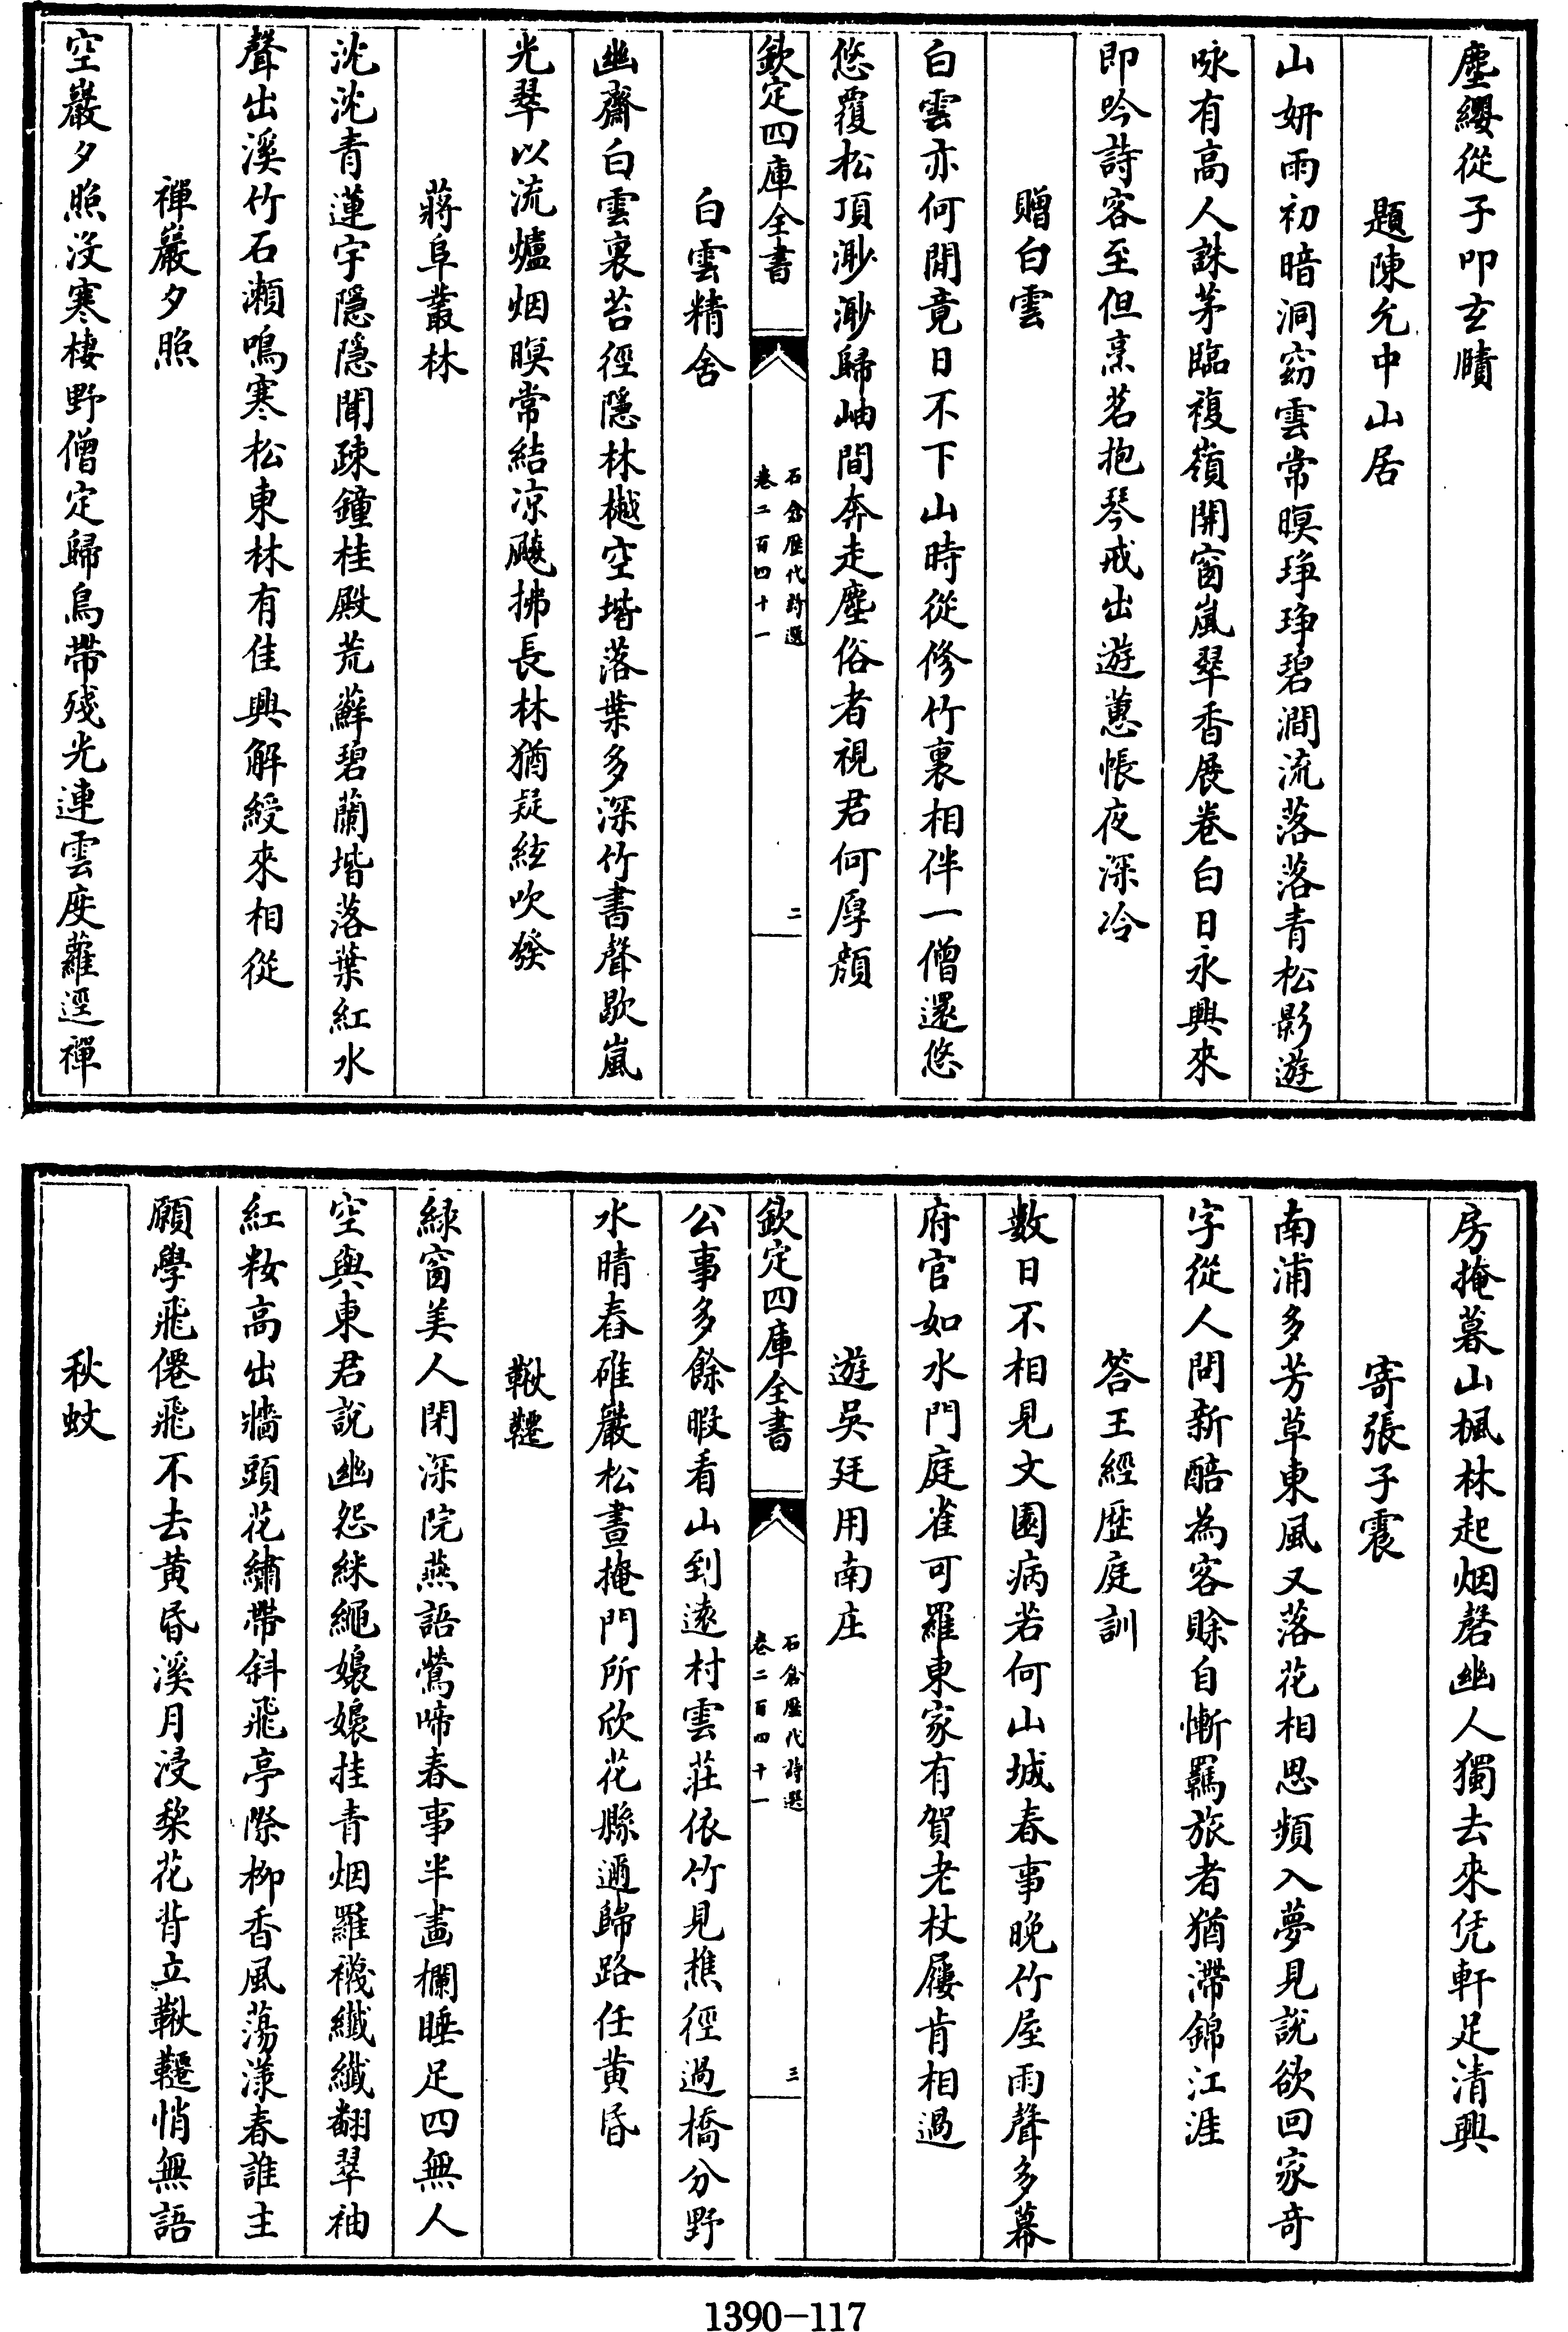 塵纓從子叩玄賾
題陳允中山居
山妍雨初暗洞窈雲常暝琤琤碧澗流落落青松影遊
咏有高人誅茅臨複嶺開窗嵐翠香展卷白日永興來
即吟詩客至但烹茗抱琴戒出遊蕙帳夜深冷
贈白雲
白雲亦何閒竟日不下山時從修竹裏相伴一僧還悠
悠覆松頂渺渺歸岫間奔走塵俗者視君何厚顔
欽定四庫全書
石倉歷代詩選
卷二百四十一
二
白雲精舍
幽齋白雲裏苔徑隱林樾空堦落葉多深竹書聲歇嵐
光翠以流爐烟暝常結凉飈拂長林猶疑絃吹發
蔣阜叢林
沈沈青蓮宇隱隱聞疎鐘桂殿荒蘚碧蘭堦落葉紅水
聲出溪竹石瀬鳴寒松東林有佳興解綬來相從
禪巖夕照
空巖夕照沒寒棲野僧定歸鳥帶殘光連雲度蘿逕禪
房掩暮山楓林起烟磬幽人獨去來凭軒足清興
寄張子震
南浦多芳草東風又落花相思頻入夢見說欲回家奇
字從人問新醅為客賒自慚羈旅者猶滯錦江涯
答王經歷庭訓
數日不相見文園病若何山城春事晚竹屋雨聲多幕
府官如水門庭雀可羅東家有賀老杖屨肯相過
遊吳廷用南庄
欽定四庫全書
石倉歷代詩選
卷二百四十一
三
公事多餘暇看山到遠村雲莊依竹見樵徑過橋分野
水晴舂碓巖松晝掩門所欣花縣邇歸路任黄昏
鞦韆
緑窗美人閉深院燕語鶯啼春事半畫欄睡足四無人
空與東君說幽怨綵繩嬝嬝挂青烟羅襪纖纖翻翠袖
紅粧高出牆頭花繡帶斜飛亭際柳香風蕩漾春誰主
願學飛僊飛不去黄昏溪月浸梨花背立鞦韆悄無語
秋蚊
1390-117